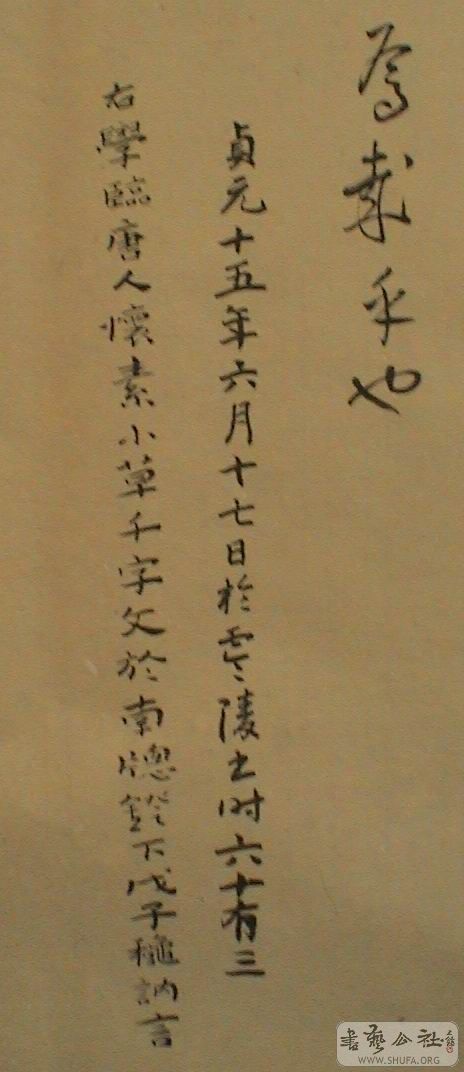 焉哉乎也
貞元十五年六月十七日於零陵書時六十有三
右學臨唐人懷素小草千字文於南牕鐙下戊子穐訥言
書藝公社
WWW.SHUFA.ORG